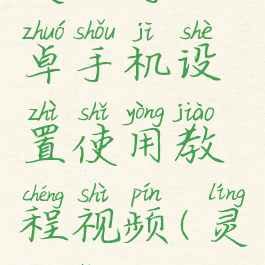 zhuó shǒu jī shè
卓手机设
zhì shǐ yòng jiào
置使用教
chéng shì pín líng
程视频(灵